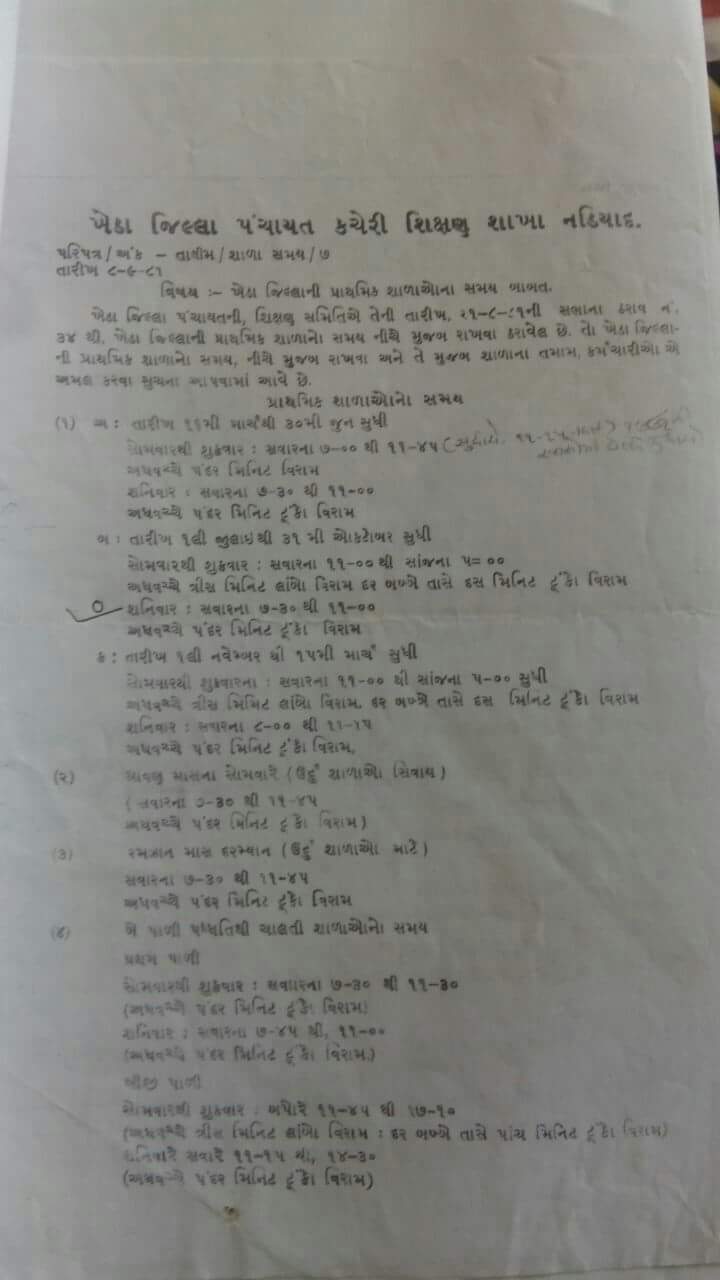 ખેડા જિલ્લા પંચાયત કચેરી શિક્ષણ શાખા નડિયાદ.
પરિપત્ર/અંક - તાલીમ/શાળા સમય/૭
તારીખ ૮-૯-૮૧
વિષય :- ખેડા જિલ્લાની પ્રાથમિક શાળાઓના સમય બાબત.
ખેડા જિલ્લા પંચાયતની, શિક્ષણ સમિતિએ તેની તારીખ, ૨૧-૮-૮૧ની સભાના ઠરાવ નં.
૩૪ થી, ખેડા જિલ્લાની પ્રાથમિક શાળાનો સમય નીચે મુજબ રાખવા ઠરાવેલ છે. તો ખેડા જિલ્લા-
ની પ્રાથમિક શાળાનો સમય, નીચે મુજબ રાખવા અને તે મુજબ શાળાના તમામ, કર્મચારીઓ એ
અમલ કરવા સુચના આપવામાં આવે છે.
પ્રાથમિક શાળાઓનો સમય
(૧) અ : તારીખ ૧૬મી માર્ચથી ૩૦મી જુન સુધી
સોમવારથી શુક્રવાર : સવારના ૭-૦૦ થી ૧૧-૪૫
અધવચ્ચે પંદર મિનિટ વિરામ
શનિવાર : સવારના ૭-૩૦ થી ૧૧-૦૦
અધવચ્ચે પંદર મિનિટ ટૂંકો વિરામ
બ : તારીખ ૧લી જુલાઇથી ૩૧ મી ઓક્ટોબર સુધી
સોમવારથી શુક્રવાર : સવારના ૧૧-૦૦ થી સાંજના ૫=૦૦
અધવચ્ચે ત્રીસ મિનિટ લાંબો વિરામ દર બબ્બે તાસે દસ મિનિટ ટૂંકો વિરામ
શનિવાર : સવારના ૭-૩૦ થી ૧૧-૦૦
અધવચ્ચે પંદર મિનિટ ટૂંકો વિરામ
ક : તારીખ ૧લી નવેમ્બર થી ૧૫મી માર્ચ સુધી
સોમવારથી શુક્રવારના : સવારના ૧૧-૦૦ થી સાંજના ૫-૦૦ સુધી
અધવચ્ચે ત્રીસ મિમિટ લાંબો વિરામ. દર બબ્બે તાસે દસ મિનિટ ટૂંકો વિરામ
શનિવાર : સવારના ૮-૦૦ થી ૧૧-૪૫
અધવચ્ચે પંદર મિનિટ ટૂંકો વિરામ.
(૨) શ્રાવણ માસના સોમવારે (ઉર્દુ શાળાઓ સિવાય)
(સવારના ૭-૩૦ થી ૧૧-૪૫
અધવચ્ચે પંદર મિનિટ ટૂંકો વિરામ)
(૩) રમઝાન માસ દરમ્યાન (ઉર્દુ શાળાઓ માટે)
સવારના ૭-૩૦ થી ૧૧-૪૫
અધવચ્ચે પંદર મિનિટ ટૂંકો વિરામ
(૪) બે પાળી પધ્ધતિથી ચાલતી શાળાઓનો સમય
પ્રથમ પાળી
સોમવારથી શુક્રવાર : સવારના ૭-૩૦ થી ૧૧-૩૦
(અધવચ્ચે પંદર મિનિટ ટૂંકો વિરામ)
શનિવાર : સવારના ૭-૪૫ થી, ૧૧-૦૦
(અધવચ્ચે પંદર મિનિટ ટૂંકો વિરામ.)
બીજી પાળી
સોમવારથી શુક્રવાર : બપોરે ૧૧-૪૫ થી ૧૭-૧૦
(અધવચ્ચે ત્રીસ મિનિટ લાંબો વિરામ : દર બબ્બે તાસે પાંચ મિનિટ ટૂંકો વિરામ)
શનિવારે સવારે ૧૧-૧૫ થી, ૧૪-૩૦
(અધવચ્ચે પંદર મિનિટ ટૂંકો વિરામ)